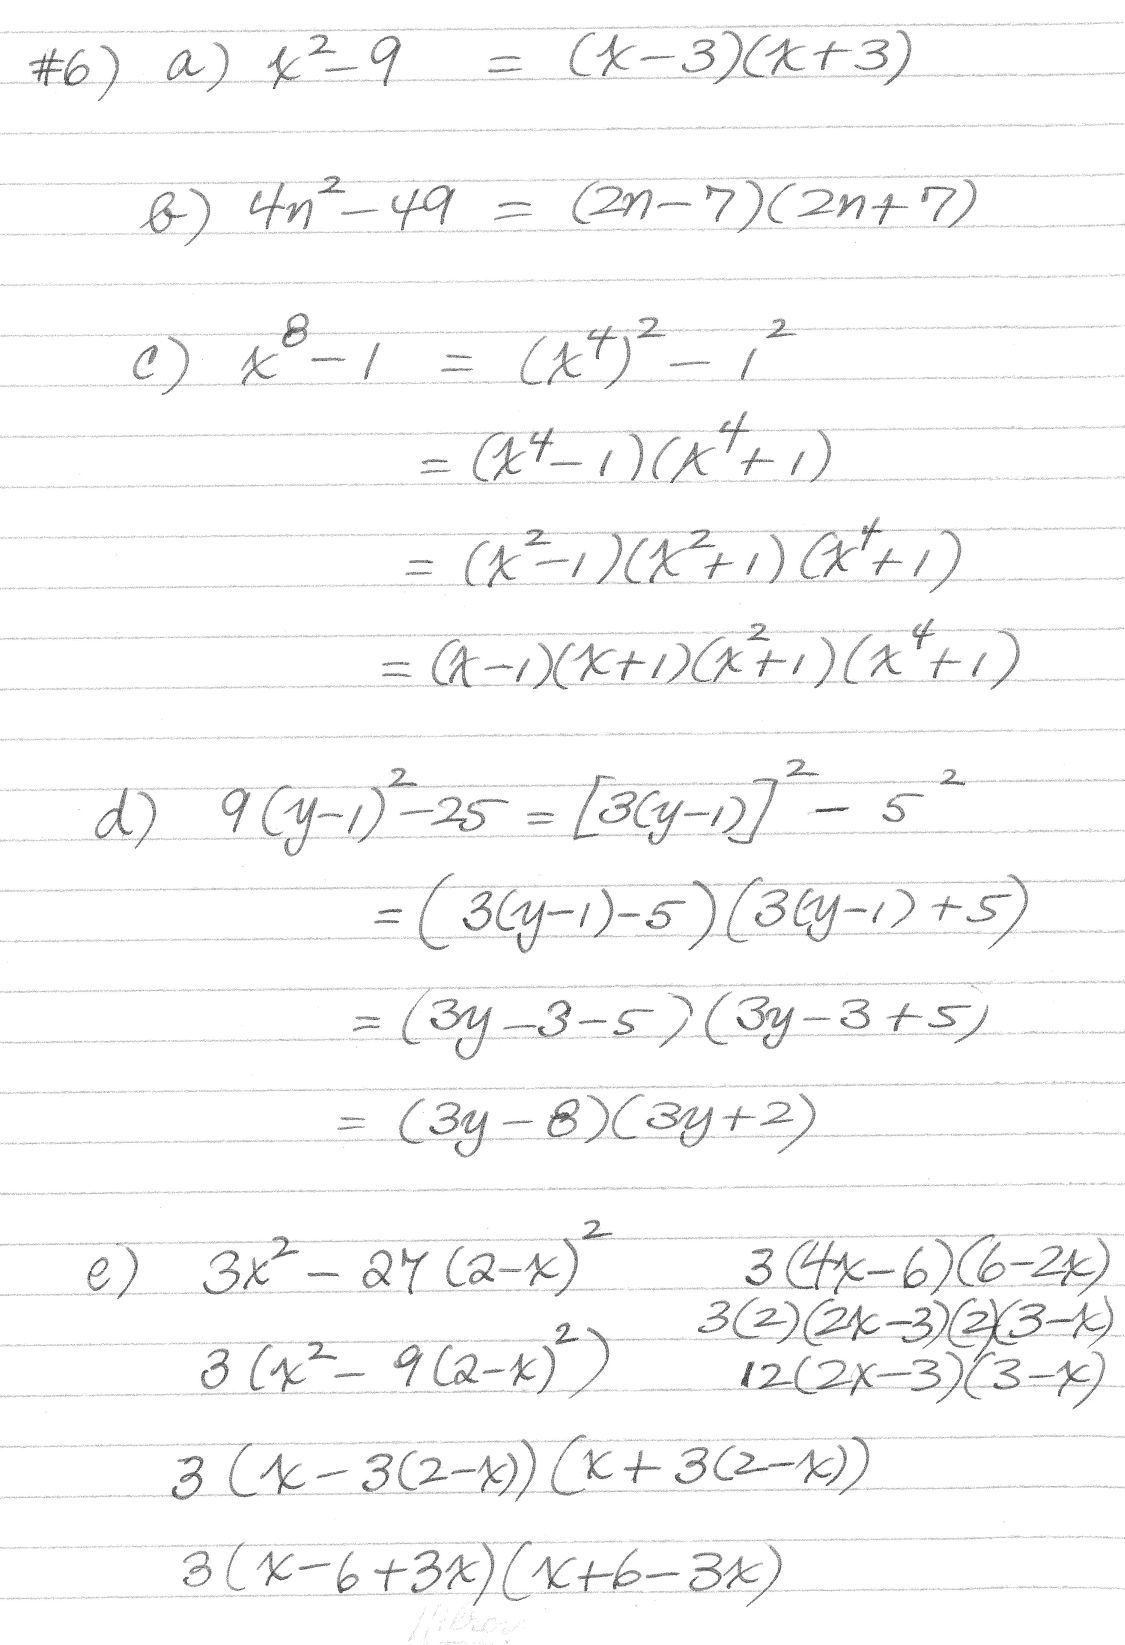 #6) a) x² - 9 = (x-3)(x+3)
b) 4n² - 49 = (2n-7)(2n+7)
c) x⁸ - 1 = (x⁴)² - 1²
= (x⁴-1)(x⁴+1)
= (x²-1)(x²+1)(x⁴+1)
= (x-1)(x+1)(x²+1)(x⁴+1)
d) 9(y-1)² - 25 = [3(y-1)]² - 5²
= (3(y-1)-5)(3(y-1)+5)
= (3y-3-5)(3y-3+5)
= (3y-8)(3y+2)
e) 3x² - 27(2-x)²
3(x² - 9(2-x)²)
3(x-3(2-x))(x+3(2-x))
3(x-6+3x)(x+6-3x)
3(4x-6)(6-2x)
3(2)(2x-3)(2)(3-x)
12(2x-3)(3-x)